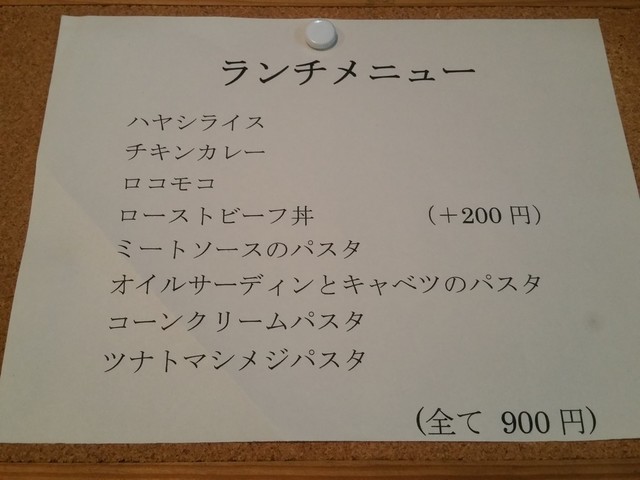 ランチメニュー
ハヤシライス
チキンカレー
ロコモコ
ローストビーフ丼 （＋200 円）
ミートソースのパスタ
オイルサーディンとキャベツのパスタ
コーンクリームパスタ
ツナトマシメジパスタ
(全て 900 円)